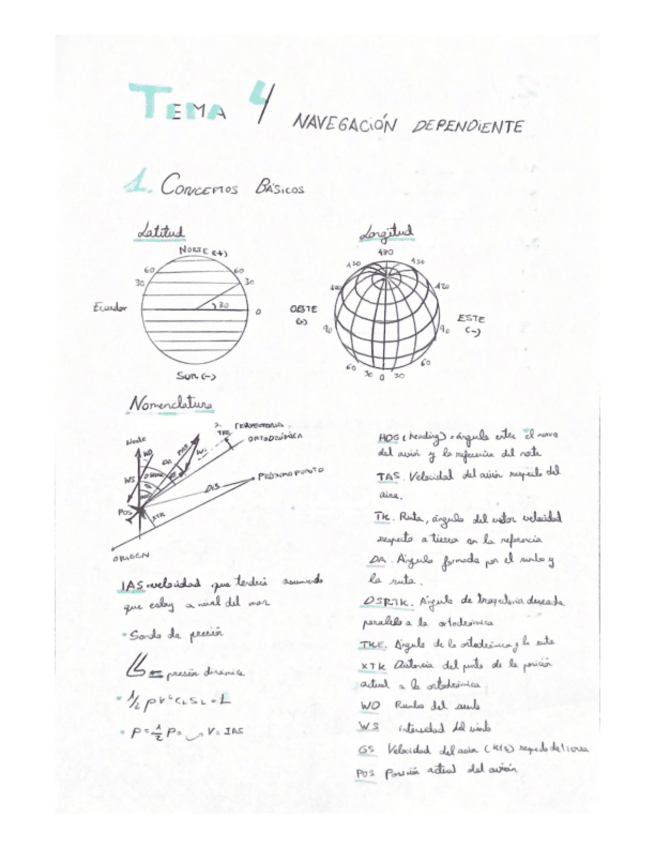 TEMA 4 NAVEGACIÓN DEPENDIENTE
1. CONCEPTOS BÁSICOS
Latitud
NORTE (+)
60 60
30 30
30
Ecuador 0
SUR (-)
Longitud
180
150 150
120
OESTE
ESTE
(-)
90 90
60 30 0 30 60
Nomenclatura
Norte
WD
WS
DA
POS
XTK
DIS
TKE
TRAYECTORIA
ORTODRÓMICA
PRÓXIMO PUNTO
ORIGEN
IAS velocidad que tendría asumiendo
que estoy a nivel del mar
• Sonda de presión
presión dinámica
HDG (heading) ángulo entre el morro
del avión y la referencia del norte
TAS. Velocidad del avión respecto del
aire.
TK. Ruta, ángulo del vector velocidad
respecto a tierra en la referencia
DA. Ángulo formado por el rumbo y
la ruta.
DSRTK. Ángulo de trayectoria deseada
paralelo a la ortodrómica
TKE. Ángulo de la ortodrómica y la ruta
XTK Distancia del punto de la posición
actual a la ortodrómica
WD Rumbo del viento
WS intensidad del viento
GS Velocidad del avión (kts) respecto del tierra
POS Posición actual del avión